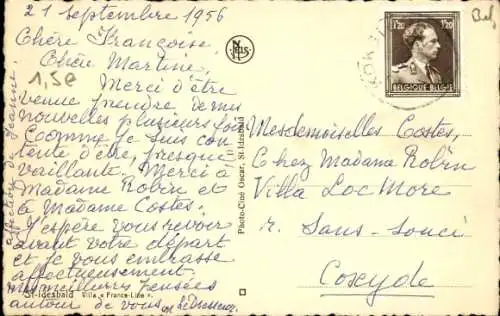 21 septembre 1956
Chère Françoise,
Chère Martine,
Merci d'être
venue prendre de mes
nouvelles plusieurs fois
Comme je suis con
tente d'être, presque
vaillante. Merci à
Madame Robin et
à Madame Costes.
J'espère vous revoir
avant votre départ
et je vous embrasse
affectueusement.
meilleures pensées
autour de vous
affection de Jeanne.
1,50
St-Idesbald Villa « France-Lise ».
Photo-Ciné Oscar, St-Idesbald
1F20 1F20
BELGIQUE BELGIE
Mesdemoiselles Costes,
Chez Madame Robin
Villa Loc More
r. Sans-souci
Coxyde